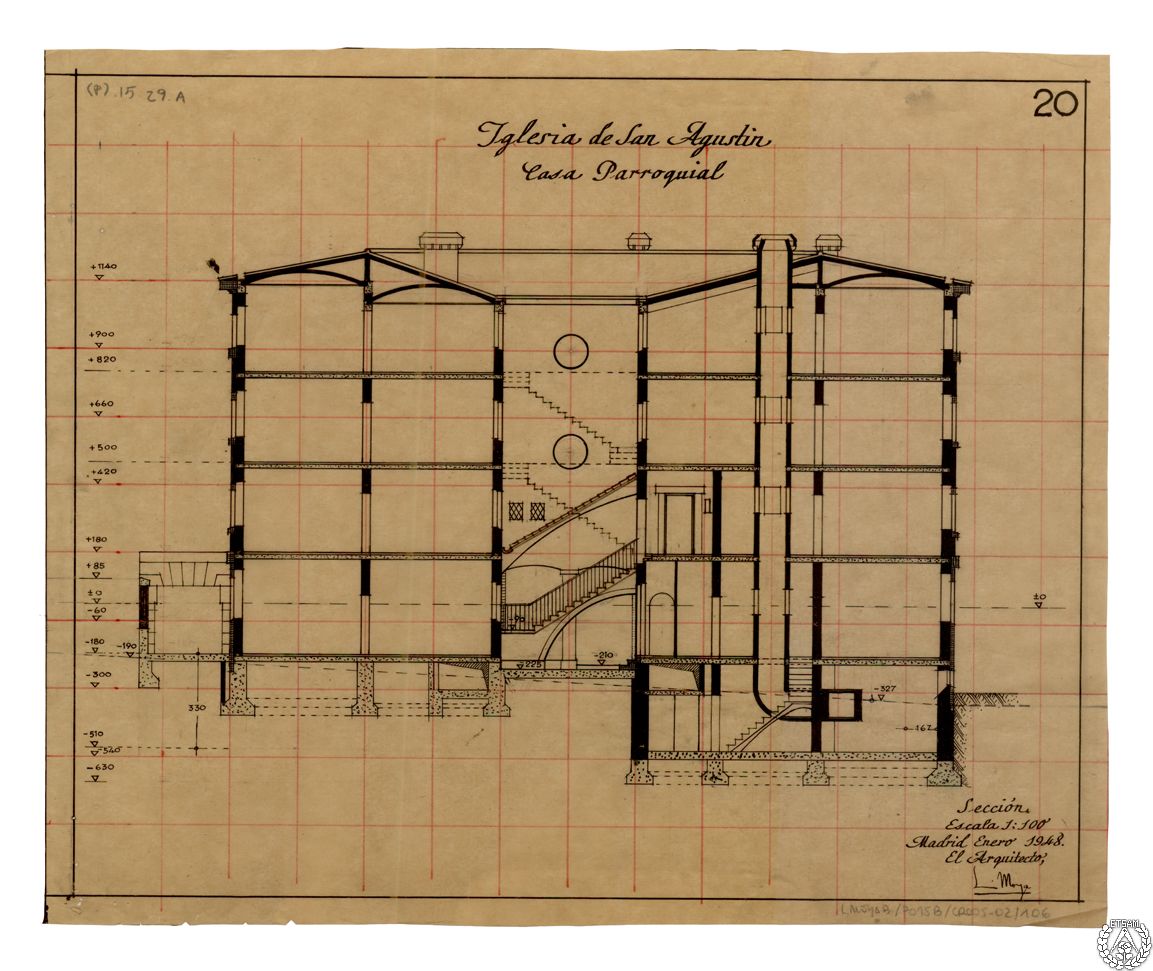 (P).15 29.A
20
Iglesia de San Agustin
Casa Parroquial
+1140
+900
+820
+660
+500
+420
+180
+85
±0
±0
-60
-180
-190
-300
330
-510
-540
-630
90
225
-210
-327
167
Sección.
Escala 1:100
Madrid Enero 1948.
El Arquitecto,
L. Moya
L.MOYAB/P015B/CR005-02/106
ETSAM